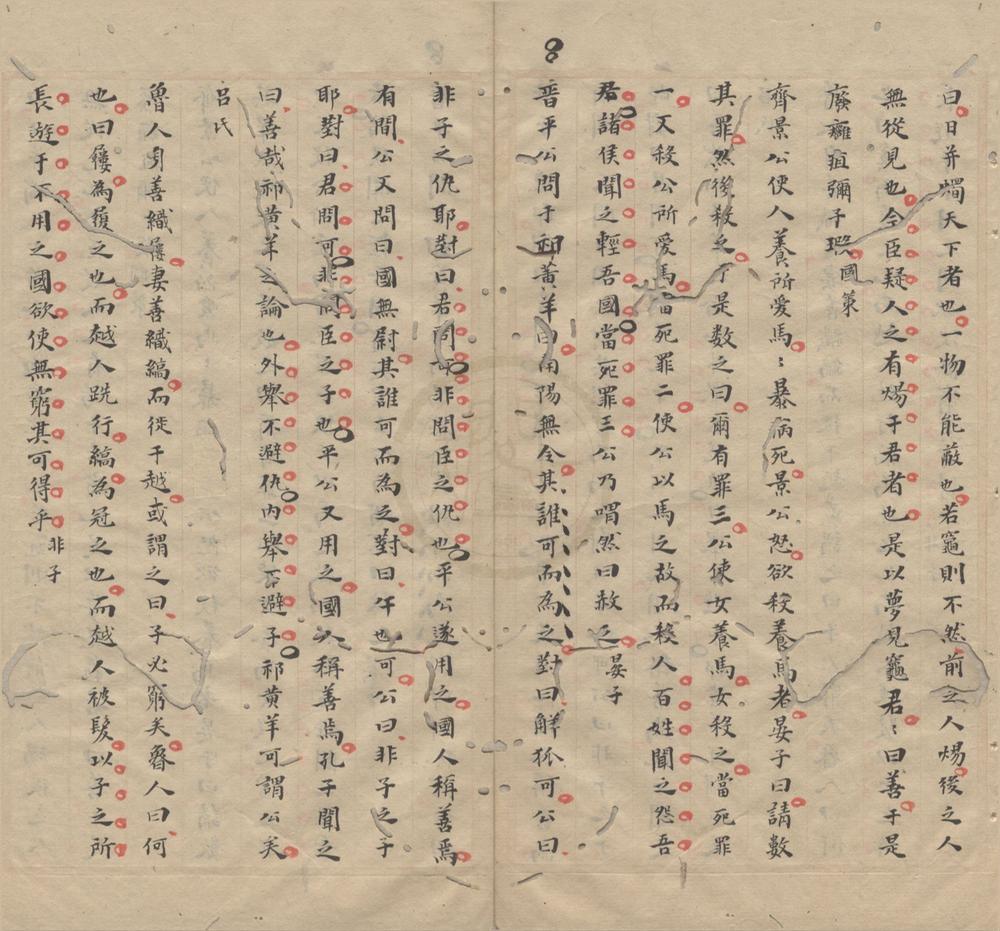 曰日并燭天下者也一物不能蔽也若竈則不然前之人煬後之人
無從見也今臣疑人之有煬于君者也是以夢見竈君〻曰善于是
廢癰疽彌子瑕 國策
齊景公使人養所愛馬〻暴病死景公怒欲殺養馬者晏子曰請數
其罪然後殺之于是數之曰爾有罪三公使女養馬女殺之當死罪
一又殺公所愛馬當死罪二使公以馬之故而殺人百姓聞之怨吾
君諸侯聞之輕吾國當死罪三公乃喟然曰赦之 晏子
晋平公問于祁黃羊曰南陽無令其誰可而為之對曰解狐可公曰
非子之仇耶對曰君問可非問臣之仇也平公遂用之國人稱善焉
有間公又問曰國無尉其誰可而為之對曰午也可公曰非子之子
耶對曰君問可非問臣之子也平公又用之國人稱善焉孔子聞之
曰善哉祁黃羊之論也外舉不避仇內舉不避子祁黄羊可謂公矣
呂氏
魯人身善織屨妻善織縞而徙于越或謂之曰子必窮矣魯人曰何
也曰屨為履之也而越人跣行縞為冠之也而越人被髮以子之所
長遊于不用之國欲使無窮其可得乎 非子